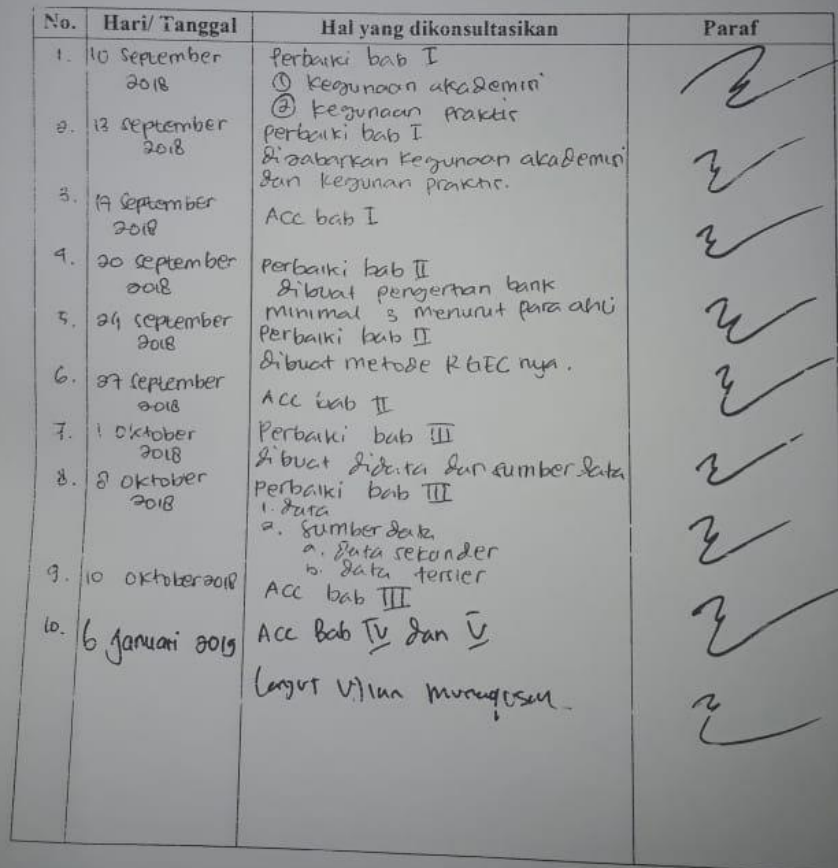 No. Hari/ Tanggal Hal yang dikonsultasikan Paraf
1. 10 September Perbaiki bab I
2018 ① kegunaan akademisi
② kegunaan praktis
2. 13 September Perbaiki bab I
2018 dijabarkan kegunaan akademisi
dan kegunan praktis.
3. 17 September
2018 ACC bab I
4. 20 September Perbaiki bab II
2018 dibuat pengertian bank
minimal 3 menurut para ahli
5. 24 September Perbaiki bab II
2018 dibuat metode RGEC nya.
6. 27 September
2018 ACC bab II
7. 1 Oktober Perbaiki bab III
2018 dibuat didata dan sumber data
8. 8 Oktober Perbaiki bab III
2018 1. data
2. Sumber data
a. data sekunder
b. data tersier
9. 10 Oktober 2018 ACC bab III
10. 6 Januari 2019 ACC Bab IV dan V
Lanjut Ujian Munaqasah